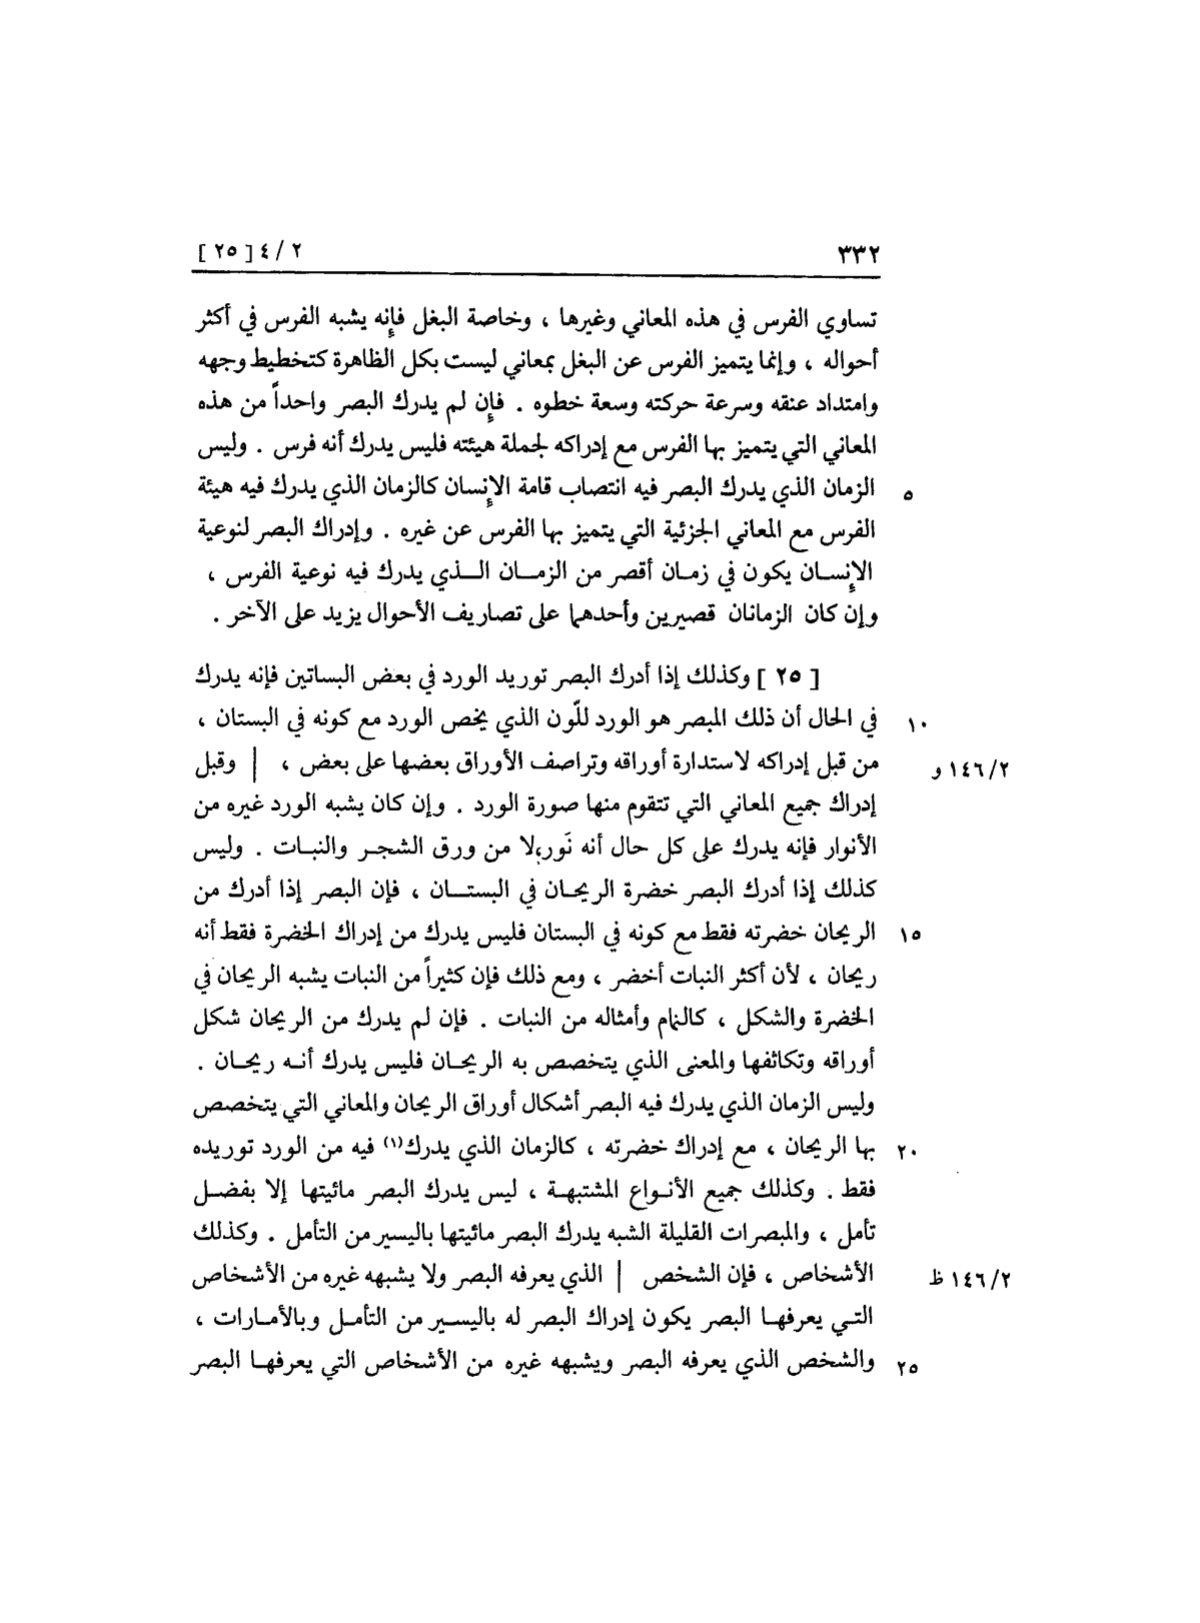 ٣٣٢ ٢ / ٤ [ ٢٥ ]
تساوي الفرس في هذه المعاني وغيرها ، وخاصة البغل فإنه يشبه الفرس في أكثر
أحواله ، وإنما يتميز الفرس عن البغل بمعاني ليست بكل الظاهرة كتخطيط وجهه
وامتداد عنقه وسرعة حركته وسعة خطوه . فإن لم يدرك البصر واحداً من هذه
المعاني التي يتميز بها الفرس مع إدراكه لجملة هيئته فليس يدرك أنه فرس . وليس
٥ الزمان الذي يدرك البصر فيه انتصاب قامة الإنسان كالزمان الذي يدرك فيه هيئة
الفرس مع المعاني الجزئية التي يتميز بها الفرس عن غيره . وإدراك البصر لنوعية
الإنسان يكون في زمان أقصر من الزمان الذي يدرك فيه نوعية الفرس ،
وإن كان الزمانان قصيرين وأحدهما على تصاريف الأحوال يزيد على الآخر .
[ ٢٥ ] وكذلك إذا أدرك البصر توريد الورد في بعض البساتين فإنه يدرك
١٠ في الحال أن ذلك المبصر هو الورد للّون الذي يخص الورد مع كونه في البستان ،
١٤٦/٢ و من قبل إدراكه لاستدارة أوراقه وتراصف الأوراق بعضها على بعض ، | وقبل
إدراك جميع المعاني التي تتقوم منها صورة الورد . وإن كان يشبه الورد غيره من
الأنوار فإنه يدرك على كل حال أنه نَور،لا من ورق الشجر والنبات . وليس
كذلك إذا أدرك البصر خضرة الريحان في البستان ، فإن البصر إذا أدرك من
١٥ الريحان خضرته فقط مع كونه في البستان فليس يدرك من إدراك الخضرة فقط أنه
ريحان ، لأن أكثر النبات أخضر ، ومع ذلك فإن كثيراً من النبات يشبه الريحان في
الخضرة والشكل ، كالنمام وأمثاله من النبات . فإن لم يدرك من الريحان شكل
أوراقه وتكاثفها والمعنى الذي يتخصص به الريحان فليس يدرك أنه ريحان .
وليس الزمان الذي يدرك فيه البصر أشكال أوراق الريحان والمعاني التي يتخصص
٢٠ بها الريحان ، مع إدراك خضرته ، كالزمان الذي يدرك(١) فيه من الورد توريده
فقط . وكذلك جميع الأنواع المشتبهة ، ليس يدرك البصر مائيتها إلا بفضل
تأمل ، والمبصرات القليلة الشبه يدرك البصر مائيتها باليسير من التأمل . وكذلك
١٤٦/٢ ظ الأشخاص ، فإن الشخص | الذي يعرفه البصر ولا يشبهه غيره من الأشخاص
التي يعرفها البصر يكون إدراك البصر له باليسير من التأمل وبالأمارات ،
٢٥ والشخص الذي يعرفه البصر ويشبهه غيره من الأشخاص التي يعرفها البصر